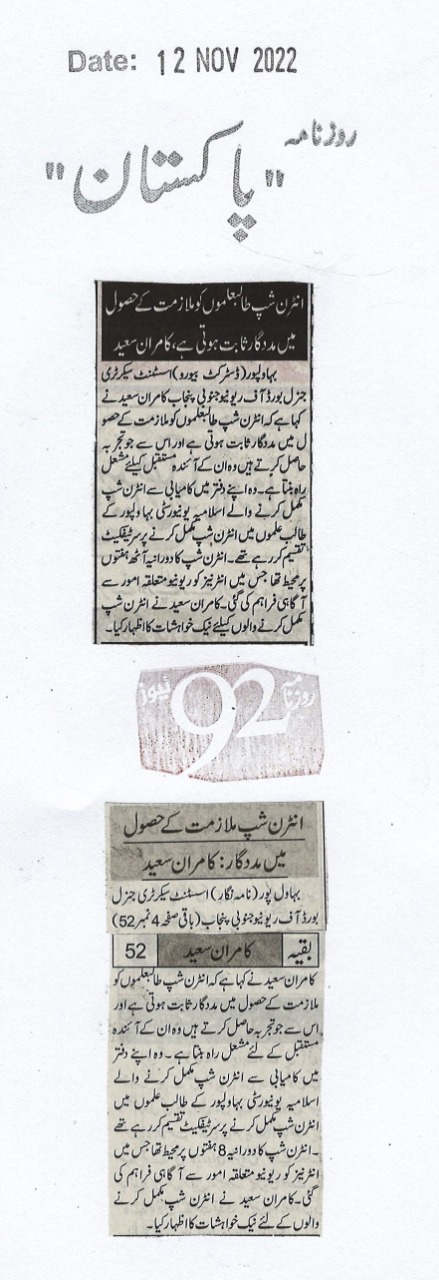 Date: 12 NOV 2022
روزنامہ
"پاکستان"
انٹرن شپ طالبعلموں کو ملازمت کے حصول
میں مددگار ثابت ہوتی ہے، کامران سعید
بہاولپور (ڈسٹرکٹ بیورو) اسسٹنٹ سیکرٹری
جنرل بورڈ آف ریونیو جنوبی پنجاب کامران سعید نے
کہا ہے کہ انٹرن شپ طالبعلموں کو ملازمت کے حصو
ل میں مددگار ثابت ہوتی ہے اور اس سے جو تجربہ
حاصل کرتے ہیں وہ ان کے آئندہ مستقبل کیلئے مشعل
راہ بنتا ہے۔ وہ اپنے دفتر میں کامیابی سے انٹرن شپ
مکمل کرنے والے اسلامیہ یونیورسٹی بہاولپور کے
طالب علموں میں انٹرن شپ مکمل کرنے پر سرٹیفکیٹ
تقسیم کر رہے تھے۔ انٹرن شپ کا دورانیہ آٹھ ہفتوں
پر محیط تھا جس میں انٹرنیز کو ریونیو متعلقہ امور سے
آگاہی فراہم کی گئی۔ کامران سعید نے انٹرن شپ
مکمل کرنے والوں کیلئے نیک خواہشات کا اظہار کیا۔
روزنامہ 92 نیوز
انٹرن شپ ملازمت کے حصول
میں مددگار: کامران سعید
بہاول پور (نامہ نگار) اسسٹنٹ سیکرٹری جنرل
بورڈ آف ریونیو جنوبی پنجاب (باقی صفحہ 4 نمبر 52)
بقیہ کامران سعید 52
کامران سعید نے کہا ہے کہ انٹرن شپ طالبعلموں کو
ملازمت کے حصول میں مددگار ثابت ہوتی ہے اور
اس سے جو تجربہ حاصل کرتے ہیں وہ ان کے آئندہ
مستقبل کے لئے مشعل راہ بنتا ہے۔ وہ اپنے دفتر
میں کامیابی سے انٹرن شپ مکمل کرنے والے
اسلامیہ یونیورسٹی بہاولپور کے طالب علموں میں
انٹرن شپ مکمل کرنے پر سرٹیفکیٹ تقسیم کر رہے تھے
۔ انٹرن شپ کا دورانیہ 8 ہفتوں پر محیط تھا جس میں
انٹرنیز کو ریونیو متعلقہ امور سے آگاہی فراہم کی
گئی۔ کامران سعید نے انٹرن شپ مکمل کرنے
والوں کے لئے نیک خواہشات کا اظہار کیا۔